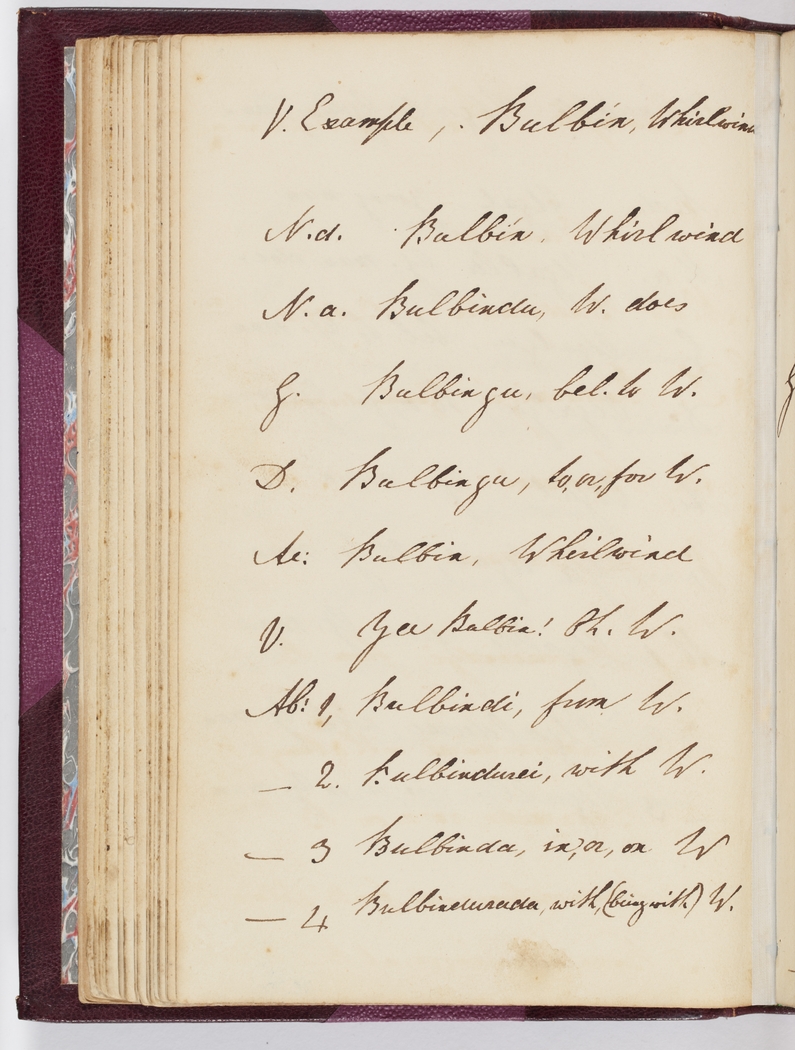 V. Example, . Bulbin, Whirlwin
N.d. Bulbin, Whirlwind
N.a. Bulbindu, W. does
G. Bulbingu, bel. to W.
D. Bulbingu, to, or, for W.
Ac: Bulbin, Whirlwind
V. Ya Bulbin! Oh. W.
Ab: 1, Bulbindi, from W.
— 2. Bulbindurei, with W.
— 3 Bulbinda, in, or, on W
— 4 Bulbindurada, with, (being with) W.